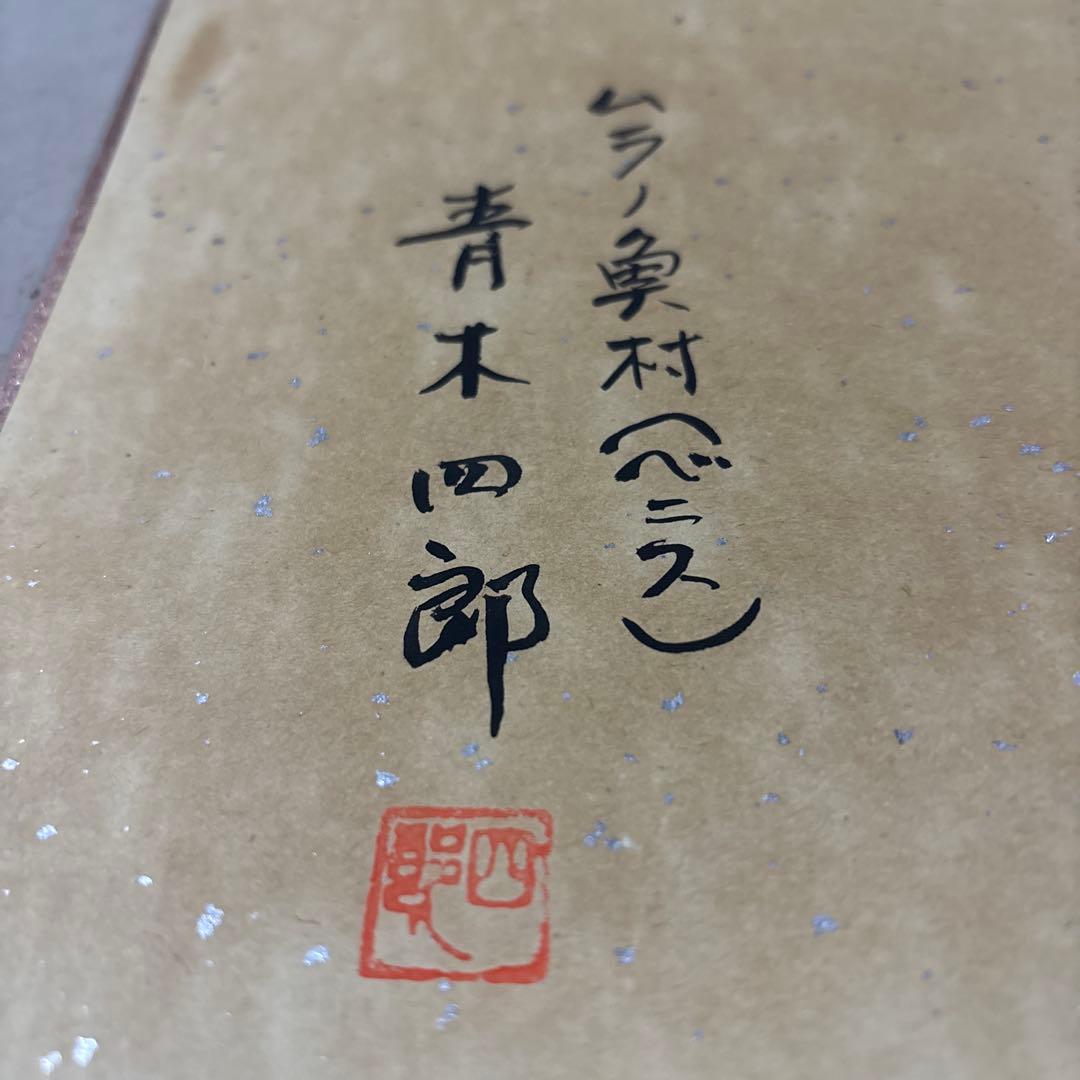 ムラノ魚村(ベニス)
青木四郎
四郎